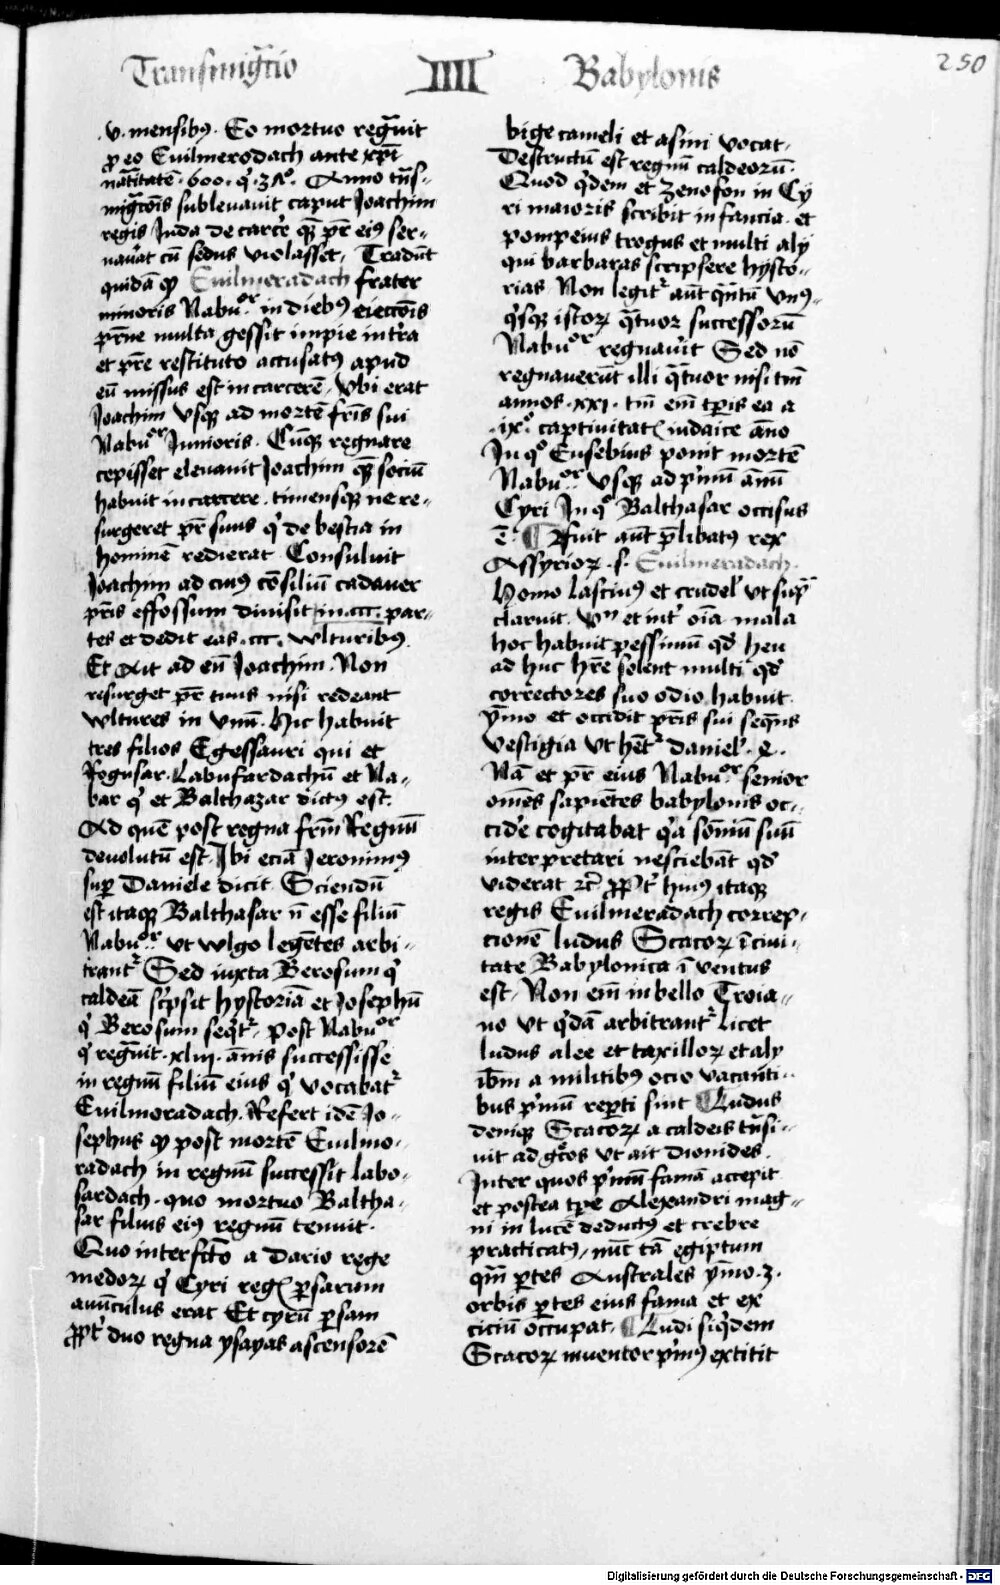 Transmigr̄cio IIII Babylonis 250
.v. mensibꝰ. Eo mortuo regn̄uit
ꝓ eo Euilmerodach ante xp̄i
nat̄itatē. 600. Anno tn̄s-
migr̄cōis subleuauit caput Joachim
regis Juda de carcēr̄ ꝙ p̄r eiꝰ ser-
uau̓at cū sedus violasset. Tradūt
quidā ꝙ Euilmeradach frater
minoris Nabuᵒʳ. in diebꝰ eiectōis
pr̄ne multa gessit impie intr̄a
et pr̄e restituto accusatꝰ apud
eū missus est in carcerē. Vbi erat
Joachim vsqꝫ ad mortē fr̄is sui
Nabuᵒʳ Junioris. Cūqꝫ regnare
cepisset eleuauit Joachim qꝫ sociū
habuit in carcere. timensqꝫ ne re-
surgeret pr̄ suus q̓ de bestia in
hominē redierat Consuluit
Joachim ad cuiꝰ cōsiliū cadauer
pr̄is effossum diuisit in .ccc. par-
tes et dedit eas .ccc. wlturibꝰ.
Et Ait ad eū Joachim. Non
resurget pr̄ tuus nisi redeant
wltures in vnū. Hic habuit
tres filios Egessauri qui et
Rogusar. Labusardachū et Na-
bar q̓ et Balthazar dictꝰ est.
Ad quē post regna fr̄m Regnū
deuolutū est. Ibi eciā Jeronimꝰ
suꝑ Daniele dicit Sciendū
est itaqꝫ Balthasar n̄ esse filiū
Nabuᵒʳ vt wlgo legētes arbi-
trant̓ Sed iuxta Berosum q̓
caldeā scꝫpsit hystoriā et Josephū
q̓ Berosum seq̄t̓, post Nabuᵒʳ
q̓ regn̄uit .xliij. annis successisse
in regnū filiū eius q̓ vocabat̓
Euilmoradach. Refert idē Jo-
sephus ꝙ post mortē Euilmo-
radach in regnū successit labo-
sardach. quo mortuo Baltha-
sar filius eiꝰ regnū tenuit.
Quo interfc̄to a Dario rege
medoꝝ q̓ Cyri reg̓ ꝑsarum
auūculus erat Et cyrū ꝑsam
ꝓpt̓ duo regna ysayas ascensorē
bige cameli et asini vocat.
Destructū est regnū caldeorū.
Quod q̓dem et Zenofon in Cy
ri maioris scribit infancia. et
pompeius trogus et multi alij
qui barbaras scripsere hysto-
rias. Non legit̓ aūt q̄ntū vnꝰ-
q̓sqꝫ istoꝝ q̄tuor successorū
Nabuᵒʳ regnau̓it Sed nō
regnauerūt illi q̄tuor nisi tm̄
annos .xxi. tm̄ em̄ tꝑis ea a
.ixᵒ. captiuitat̓ iudaice āno
In qᵒ Eusebius ponit mortē
Nabuᵒʳ. vsqꝫ ad p̓mū ānū
Cyri In qᵒ Balthasar occisus
ē. ¶ Fuit aūt p̄libatꝰ rex
Assyrioꝝ .s. Euilmeradach.
Homo lasciuꝰ et crudel̓ vt sup̄
claruit. Vn̄ et int̓ oīa mala
hoc habuit pessimū qd̓ heu
ad huc hr̄e solent multi qd̓
correctores suo odio habuit.
ymo et occidit pr̄is sui seq̄ns
vestigia vt hēt̓ daniel̓. 2.
Nā et pr̄ eius Nabuᵒʳ. senior
omēs sapiētes babylonis oc-
cid̓e cogitabat q̓a sōniū suū
interpretari nesciebāt qd̓
viderat ꝛc̄ ꝓpt̓ huiꝰ itaqꝫ
regis Euilmeradach correp-
cionē ludus Scacoꝝ ī ciui-
tate Babylonica ī ventus
est. Non em̄ in bello Troia-
no vt q̓dā arbitrant̓ licet
ludus alee et taxilloꝝ et alij
ibm̄ a militibꝰ ocio vacanti-
bus p̓mū reꝑti sint ¶ Ludus
deniqꝫ Scacoꝝ a caldeis tn̄si-
uit ad gr̄cos vt ait dionides.
Inter quos p̓mū famā accepit
et postea tꝑe Alexandri mag-
ni in lucē deductꝰ et crebre
practicatꝰ, nūc tā egiptum
qm̄ ꝑtes Australes ymo .3.
orbis ꝑtes eius fama et ex
ciciū occupat. ¶ Ludi siq̓dem
Scacoꝝ inuentor p̓mꝰ extitit
Digitalisierung gefördert durch die Deutsche Forschungsgemeinschaft - DFG